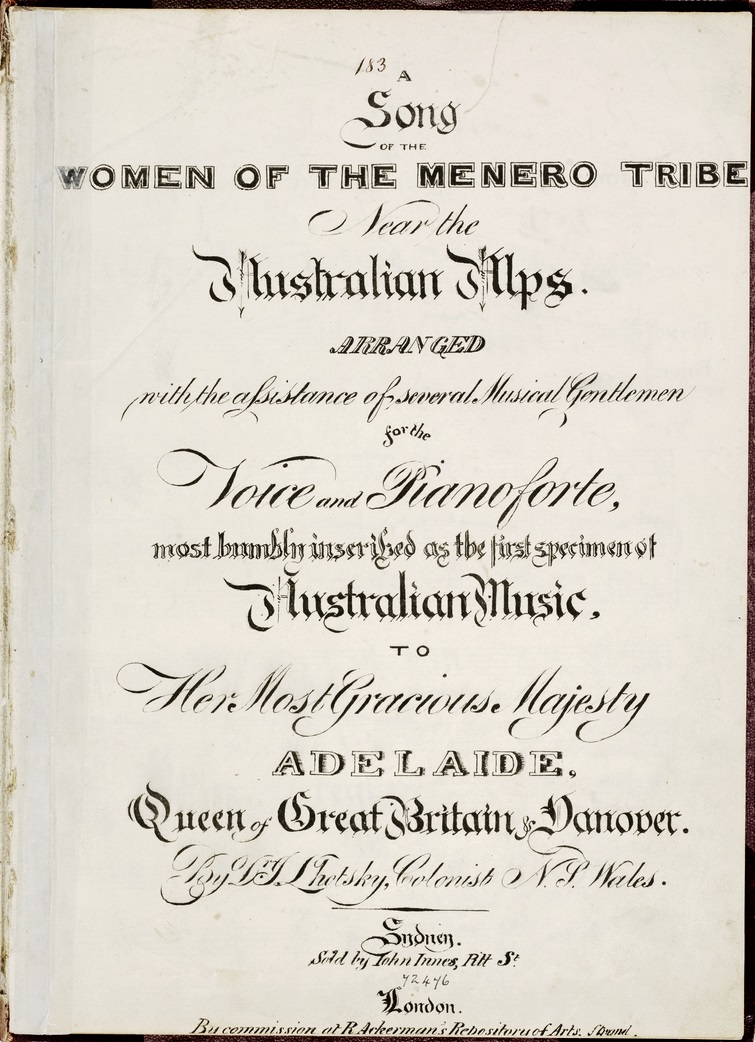 183
A
Song
OF THE
WOMEN OF THE MENERO TRIBE
Near the
Australian Alps.
ARRANGED
with the assistance of several Musical Gentlemen
for the
Voice and Pianoforte,
most humbly inscribed as the first specimen of
Australian Music,
TO
Her Most Gracious Majesty
ADELAIDE,
Queen of Great Britain & Hanover.
By Dr J. Lhotsky, Colonist N. S. Wales.
Sydney.
Sold by John Innes, Pitt St
72476
London.
By commission at R. Ackerman's Repository of Arts. Strand.